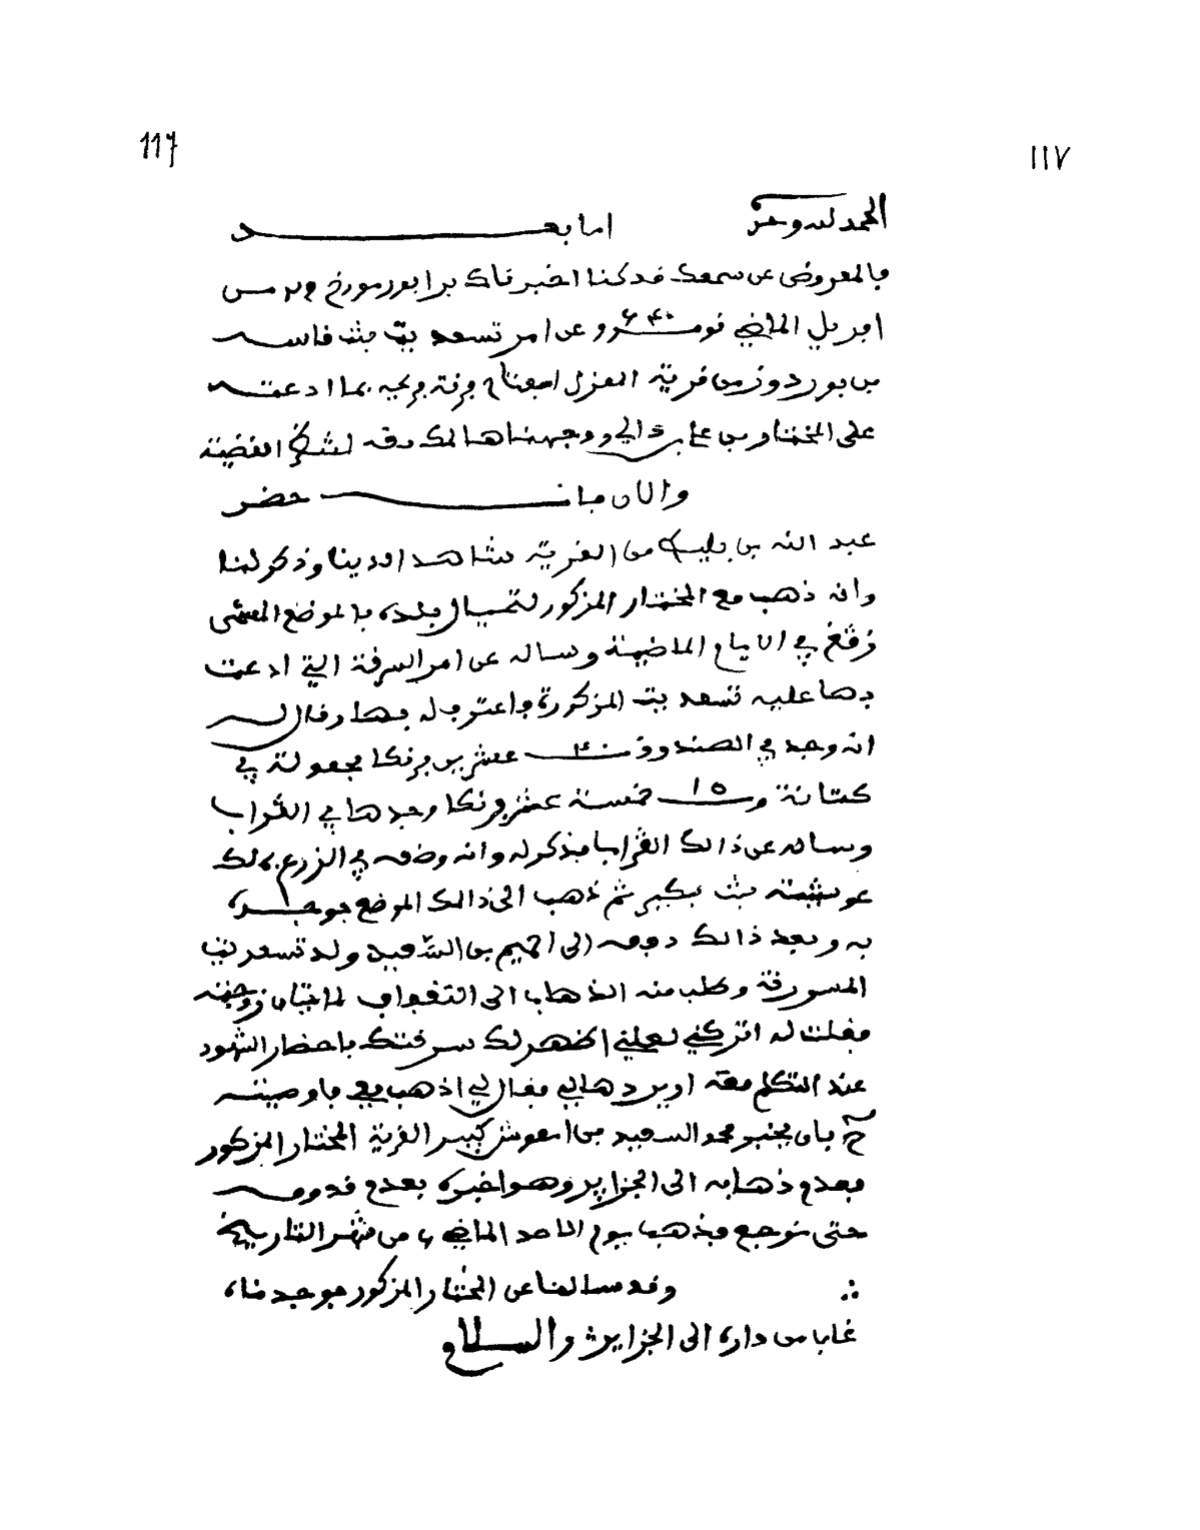 117
١١٧
الحمد لله وحده اما بعد
فالمعروض عن سمعك قد كنا اخبرناك برابور مورخ من
ابريل الماضي نومرو ٦٤٠ عن امر تسعديت بنت قاسه
بن بوردوز من قرية العزل بما ادعته
على المختار بن ووجهناها لك
والان فانه حضر
عبد الله بن من القرية شاهدا لدينا وذكر لنا
وانه ذهب مع المختار المزكور بالموضع المسمى
في الايام الماضية وساله عن امر السرفة التي ادعت
بها عليه تسعديت المزكورة فاعترف له بها وقال له
انه وجد في الصندوق ٢٠ عشرين فرنكا مجعولة في
كتانة و ١٥ خمسة عشر فرنكا وجدها في القراب
وساله عن ذالك القراب فذكر له وانه وضعه في الزرع ملك
بنت ثم ذهب الى ذالك الموضع فوجده
به وبعد ذالك دفعه الى احميم بن السعيد ولد تسعديت
المسروقة وطلب منه الذهاب الى زوجته
فقلت له اتركني لعلني اظهر لك سرقتك باحضار الشهود
عند التكلم معه اوين دهابي فقال لي اذهب معي فاوصيته
ح بان يخبر محمد السعيد بن اعموش كبير القرية المختار المزكور
فبعدم ذهابه الى الجزاير وهو اخبره بعدم قدومه
حتى نرجع فذهب يوم الاحد الماضي من شهر التاريخ
وقد سالنا عن المختار المزكور فوجدناه
غايبا من داره الى الجزاير والسلام